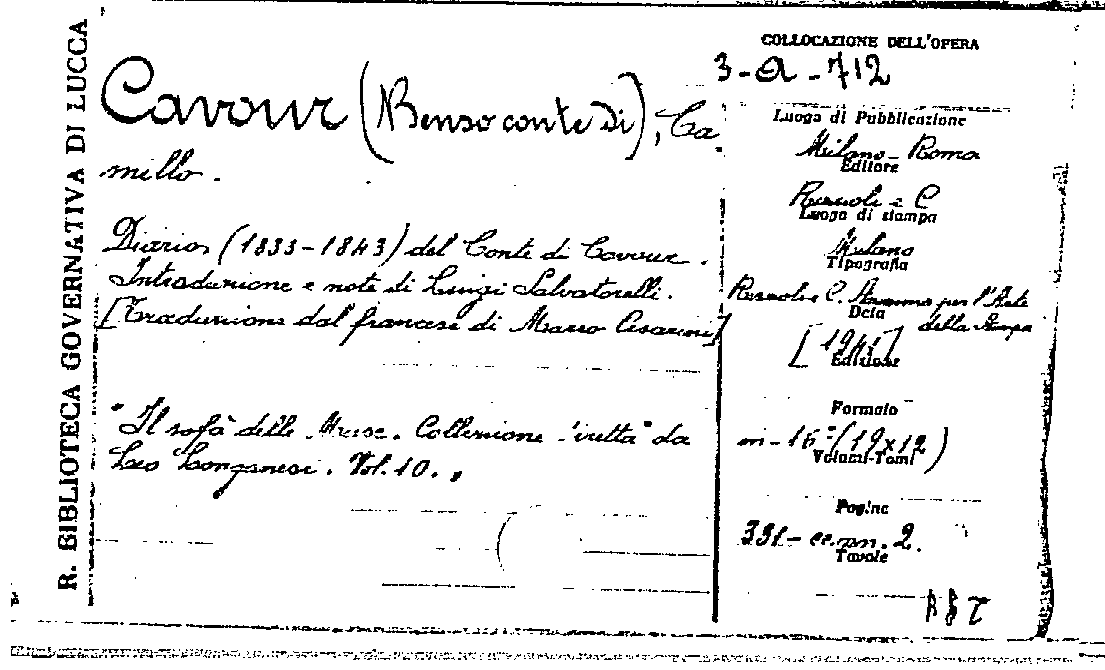 R. BIBLIOTECA GOVERNATIVA DI LUCCA
Cavour (Benso conte di), Ca
millo.
Diario (1833-1843) del Conte di Cavour.
Introduzione e note di Luigi Salvatorelli.
[Traduzione dal francese di Marco Cesarini]
"Il sofà delle Muse. Collezione diretta da
Leo Longanesi. Vol. 10."
COLLOCAZIONE DELL'OPERA
3-a-712
Luogo di Pubblicazione
Milano-Roma
Editore
Rizzoli e C
Luogo di stampa
Milano
Tipografia
Rizzoli e C. Anonima per l'Arte
della Stampa
Data
[1941]
Edizione
Formato
in-16° (19x12)
Volumi-Tomi
Pagine
331- cc. nn. 2.
Tavole